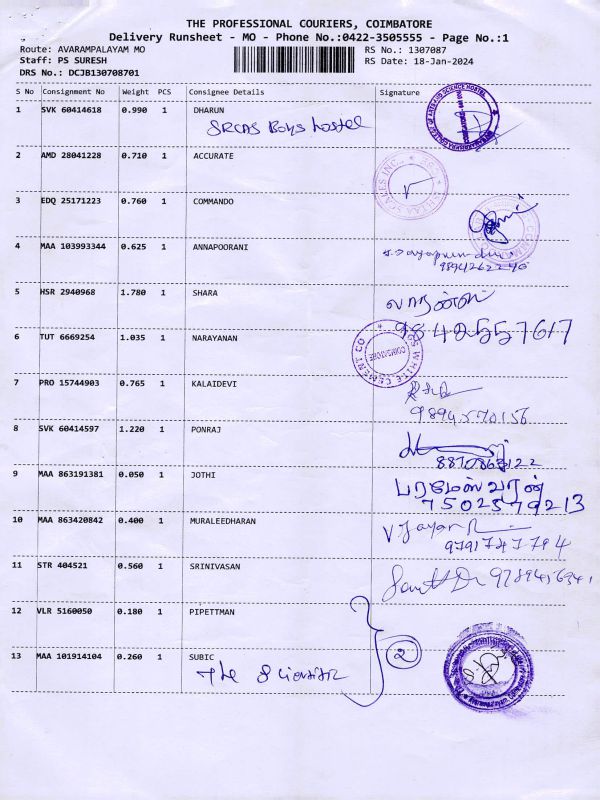 THE PROFESSIONAL COURIERS, COIMBATORE
Delivery Runsheet - MO - Phone No.:0422-3505555 - Page No.:1
Route: AVARAMPALAYAM MO
RS No.: 1307087
Staff: PS SURESH
RS Date: 18-Jan-2024
DRS No.: DCJB130708701
S No Consignment No Weight PCS Consignee Details Signature
1 SVK 60414618 0.990 1 DHARUN
SRCAS Boys hostel
2 AMD 28041228 0.710 1 ACCURATE
3 EDQ 25171223 0.760 1 COMMANDO
4 MAA 103993344 0.625 1 ANNAPOORANI
9894262240
5 HSR 2940968 1.780 1 SHARA
9842557617
6 TUT 6669254 1.035 1 NARAYANAN
WHITE CEMENT CO
COIMBATORE
7 PRO 15744903 0.765 1 KALAIDEVI
9894570156
8 SVK 60414597 1.220 1 PONRAJ
8870863122
9 MAA 863191381 0.050 1 JOTHI
பரமேஸ்வரன்
7502579213
10 MAA 863420842 0.400 1 MURALEEDHARAN
9791747794
11 STR 404521 0.560 1 SRINIVASAN
12 VLR 5160050 0.180 1 PIPETTMAN
13 MAA 101914104 0.260 1 SUBIC
The Scientific
2